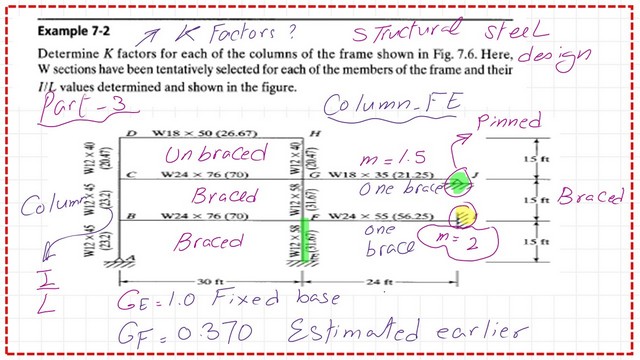 Example 7-2
↗ K Factors ?
Structural steel design
Determine K factors for each of the columns of the frame shown in Fig. 7.6. Here,
W sections have been tentatively selected for each of the members of the frame and their
I/L values determined and shown in the figure.
Part-3
Column-FE
Pinned
D W18 × 50 (26.67) H
W12 × 40
(20.47)
Unbraced
W12 × 40
(20.47)
m=1.5
15 ft
C W24 × 76 (70) G W18 × 35 (21.25) J
Column
W12 × 45
(23.2)
Braced
W12 × 58
(31.67)
One brace
15 ft
Braced
B W24 × 76 (70) F W24 × 55 (56.25)
W12 × 45
(23.2)
Braced
W12 × 58
(31.67)
one
brace
m=2
15 ft
A
30 ft 24 ft
I
L
GE=1.0 Fixed base
GF=0.370 Estimated earlier